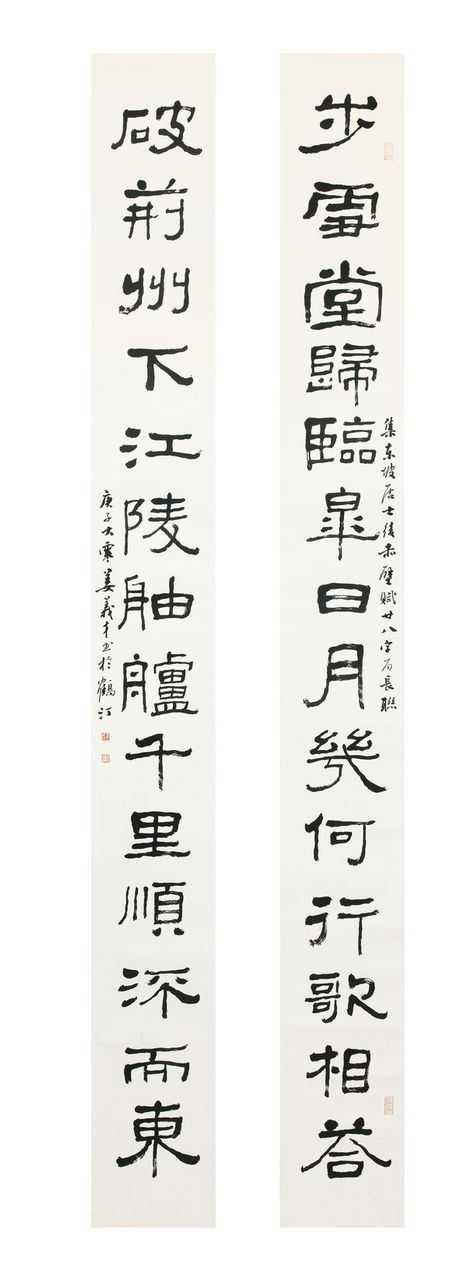 步雪堂歸臨皋日月幾何行歌相荅
集东坡居士後赤壁賦廿八字为長聯
破荆州下江陵舳艫千里順流而東
庚子大寒姜義才书於鶴江